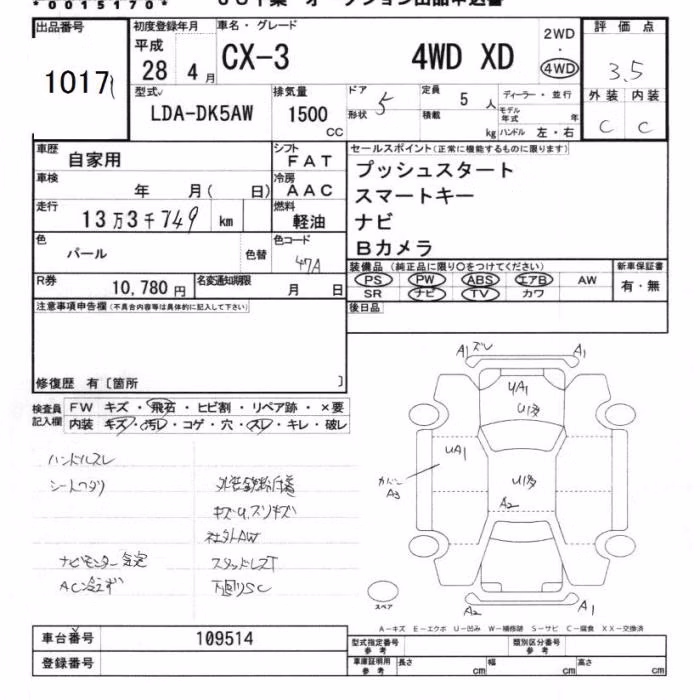 *0015170*
出品番号
1017
初度登録年月
平成
28 4月
車名・グレード
CX-3 4WD XD
2WD
・
4WD
評価点
3.5
外装 内装
C C
型式
LDA-DK5AW
排気量
1500
CC
ドア 5
形状
定員 5 人
積載 kg
ディーラー・並行
モデル年式 年
ハンドル 左・右
車歴
自家用
シフト
FAT
車検
年 月( 日)
冷房
AAC
走行
13万3千749 km
燃料
軽油
色
パール
色替
色コード
47A
R券
10,780円
名変通知期限
月 日
セールスポイント(正常に機能するものに限ります)
プッシュスタート
スマートキー
ナビ
Bカメラ
装備品(純正品に限り○をつけてください)
PS PW ABS エアB AW
SR ナビ TV カワ
新車保証書
有・無
後日品
注意事項申告欄(不具合内容等は具体的に記入して下さい)
修復歴 有〔箇所 〕
検査員
記入欄
FW キズ・飛石・ヒビ割・リペア跡・×要
内装 キズ・汚レ・コゲ・穴・スレ・キレ・破レ
ハンドルスレ
シートヘタリ
キズU,スリキズ
社外AW
ナビモニター
スタッドレスT
AC冷えず
下回りSC
A1 ズレ A1
UA1
UA1
カバー
A3
A2
A2 A1
スペア
A-キズ E-エクボ U-凹み W-補修跡 S-サビ C-腐食 XX-交換済
車台番号
109514
登録番号
型式指定番号
参考
類別区分番号
参考
車庫証明用
参考
長さ cm
幅 cm
高さ cm